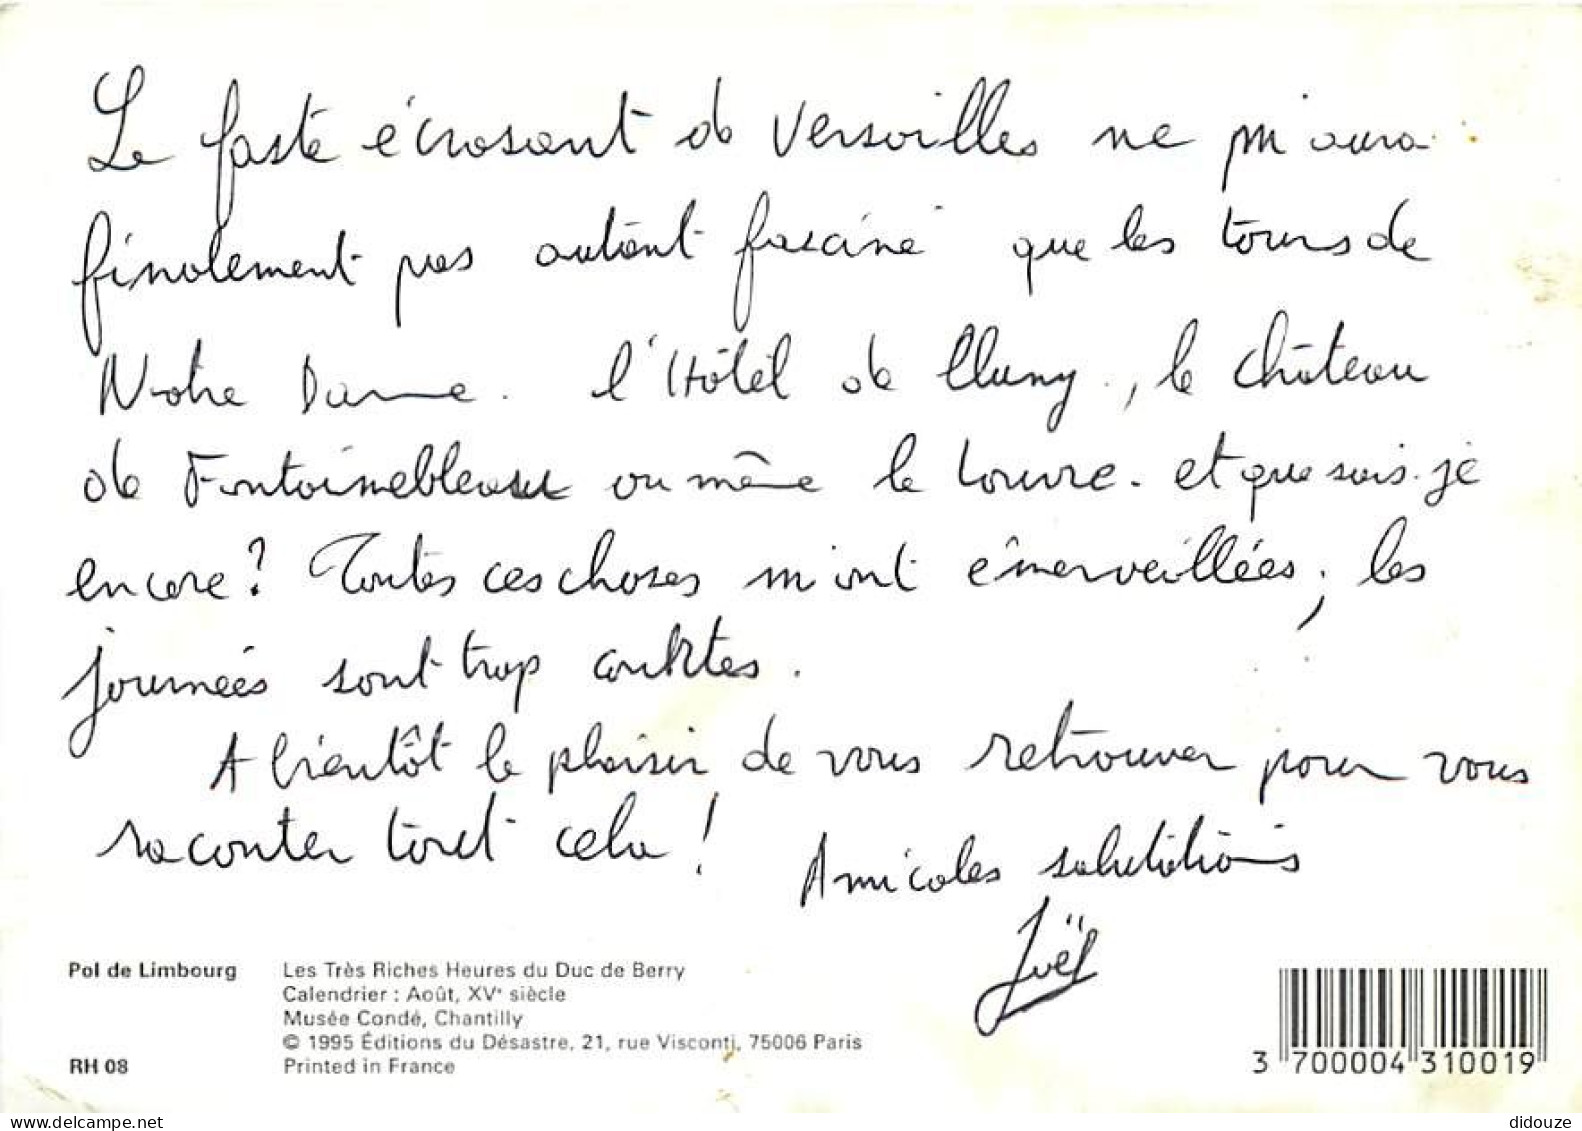 Le faste écrasant de Versailles ne m'aura
finalement pas autant fasciné que les tours de
Notre Dame. l'Hôtel de Cluny, le château
de Fontainebleau ou même le Louvre. et que sais-je
encore? Toutes ces choses m'ont émerveillées, les
journées sont trop courtes.
A bientôt le plaisir de vous retrouver pour vous
raconter tout cela!
Amicales salutations
Joël
Pol de Limbourg
Les Très Riches Heures du Duc de Berry
Calendrier : Août, XVe siècle
Musée Condé, Chantilly
© 1995 Éditions du Désastre, 21, rue Visconti, 75006 Paris
RH 08
Printed in France
3 700004 310019
didouze